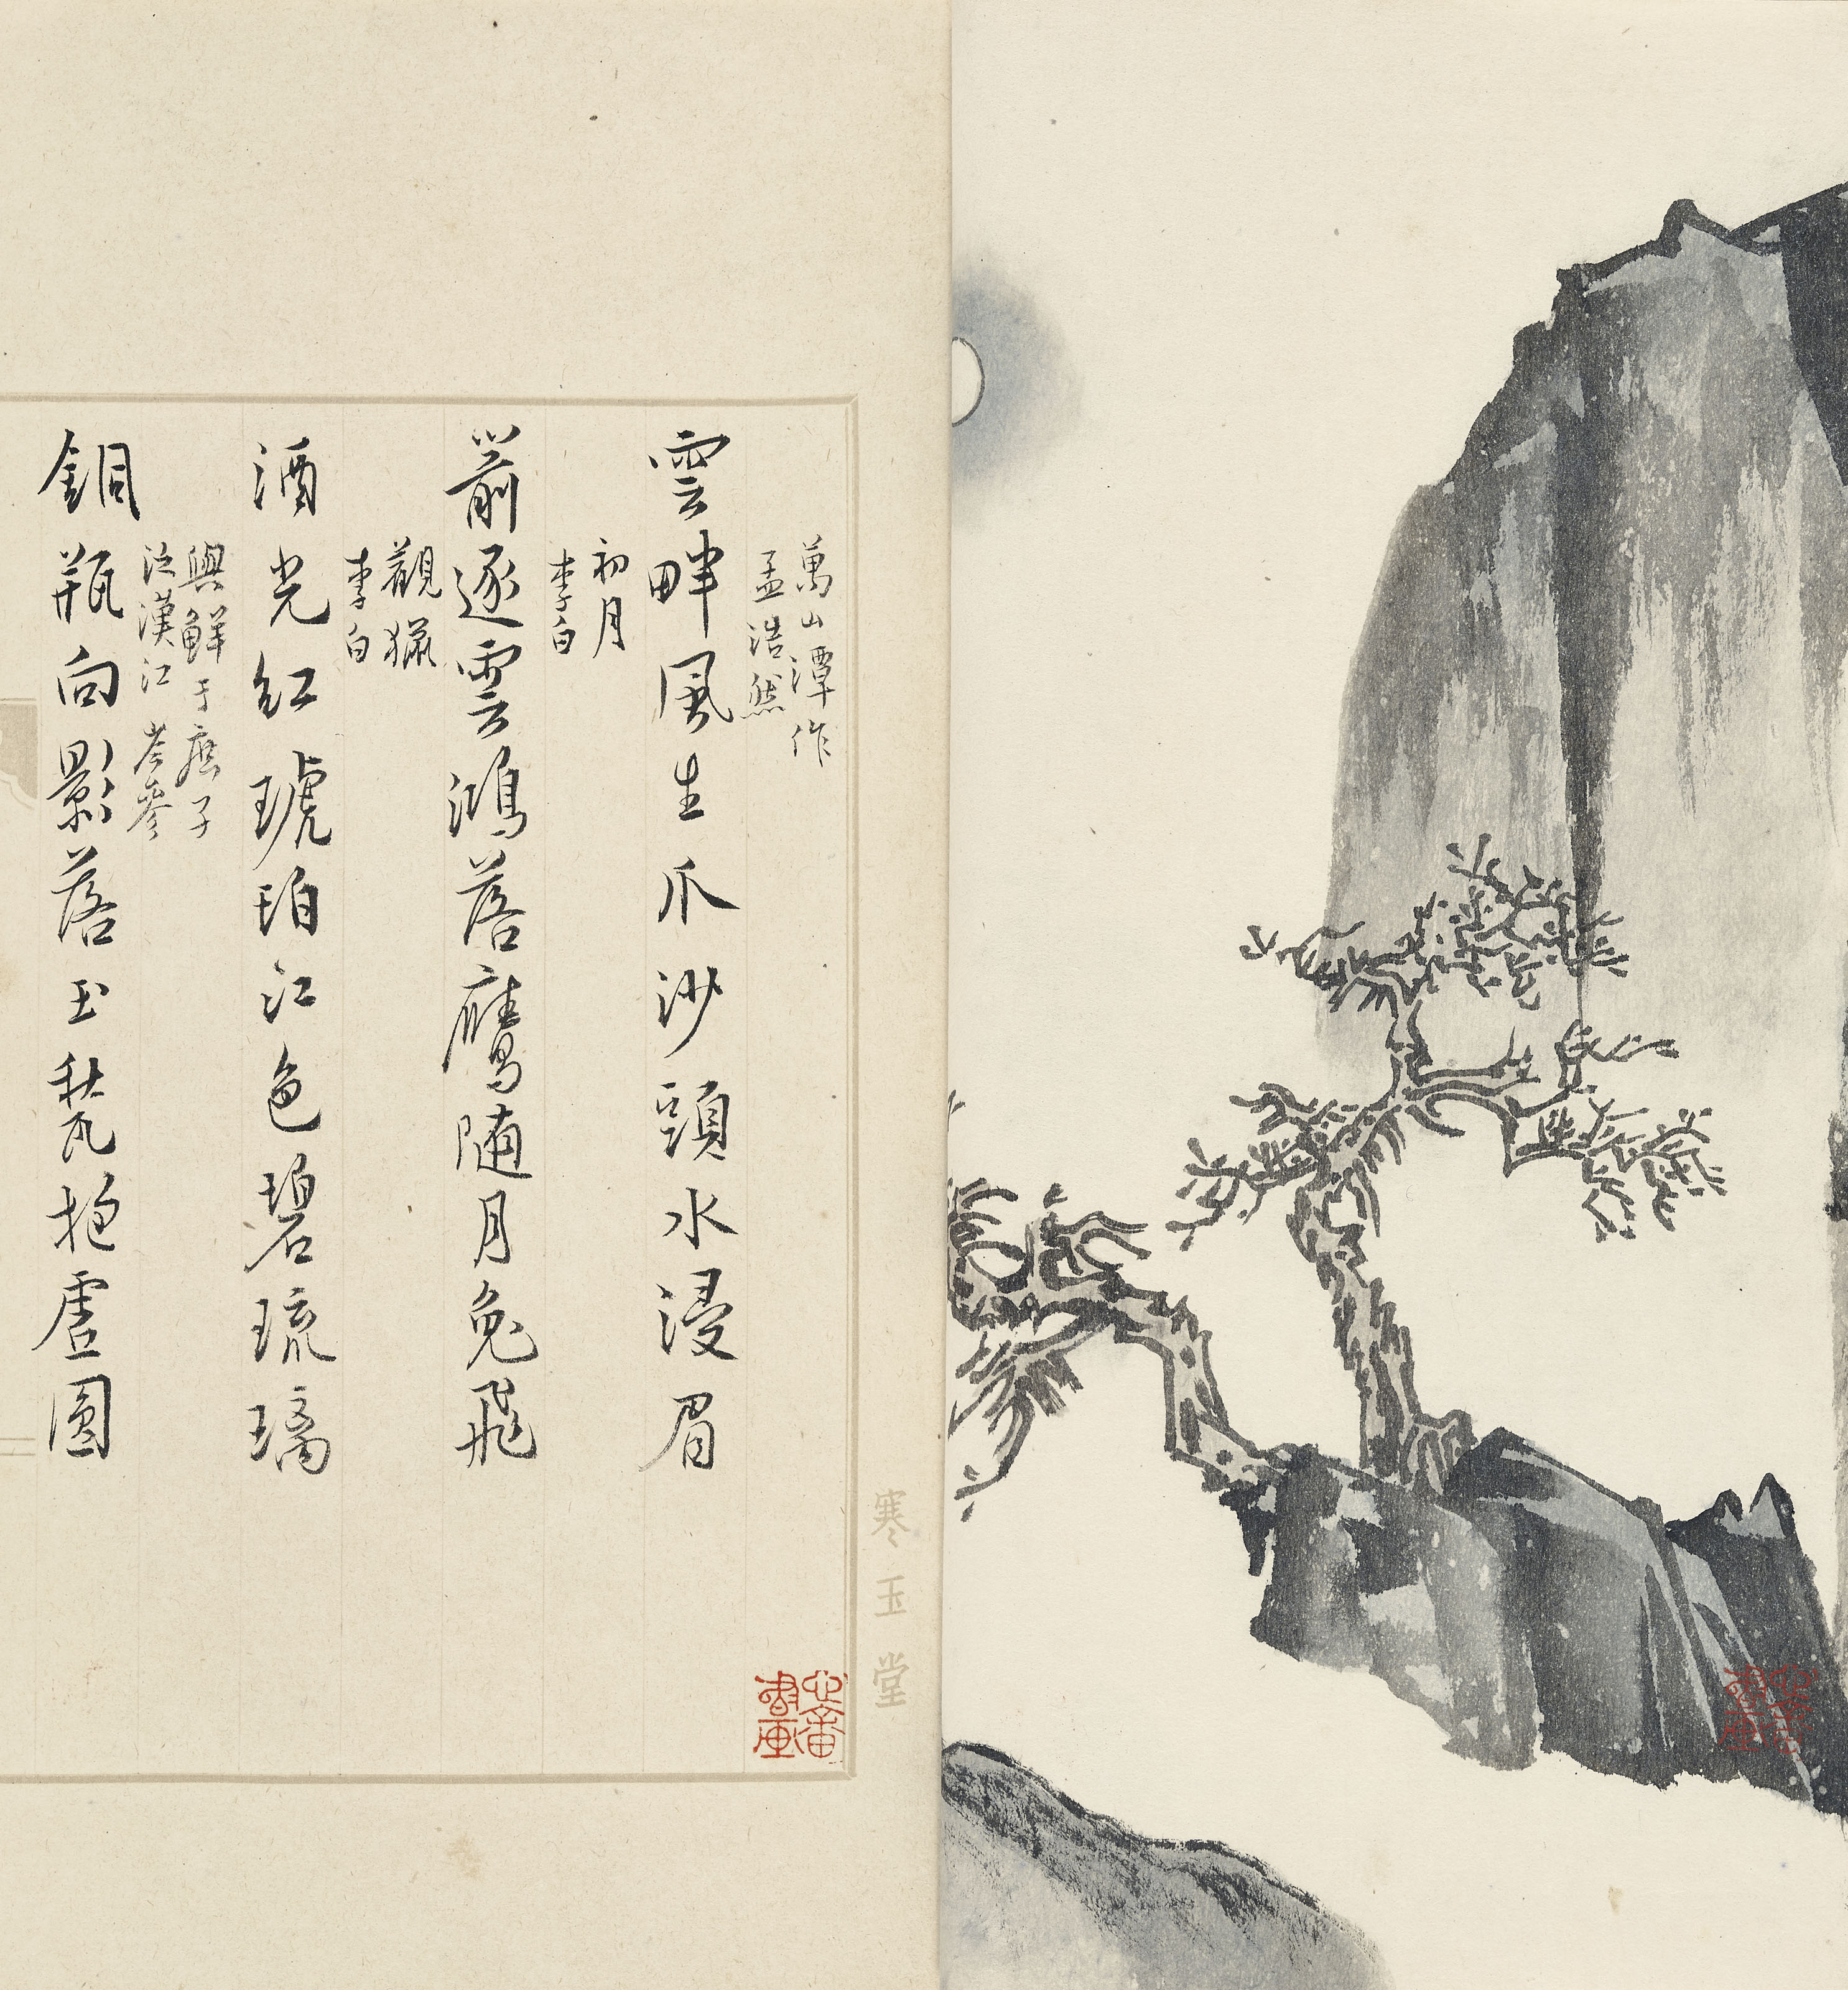 寒玉堂
萬山潭作
孟浩然
雲畔風生爪沙頭水浸眉
初月
李白
箭逐雲鴻落鷹隨月兔飛
觀獵
李白
酒光紅琥珀江色碧琉璃
與鮮于庶子
泛漢江 岑參
銅瓶向影落玉甃抱虛圓
心畬
書畫
心畬
書畫